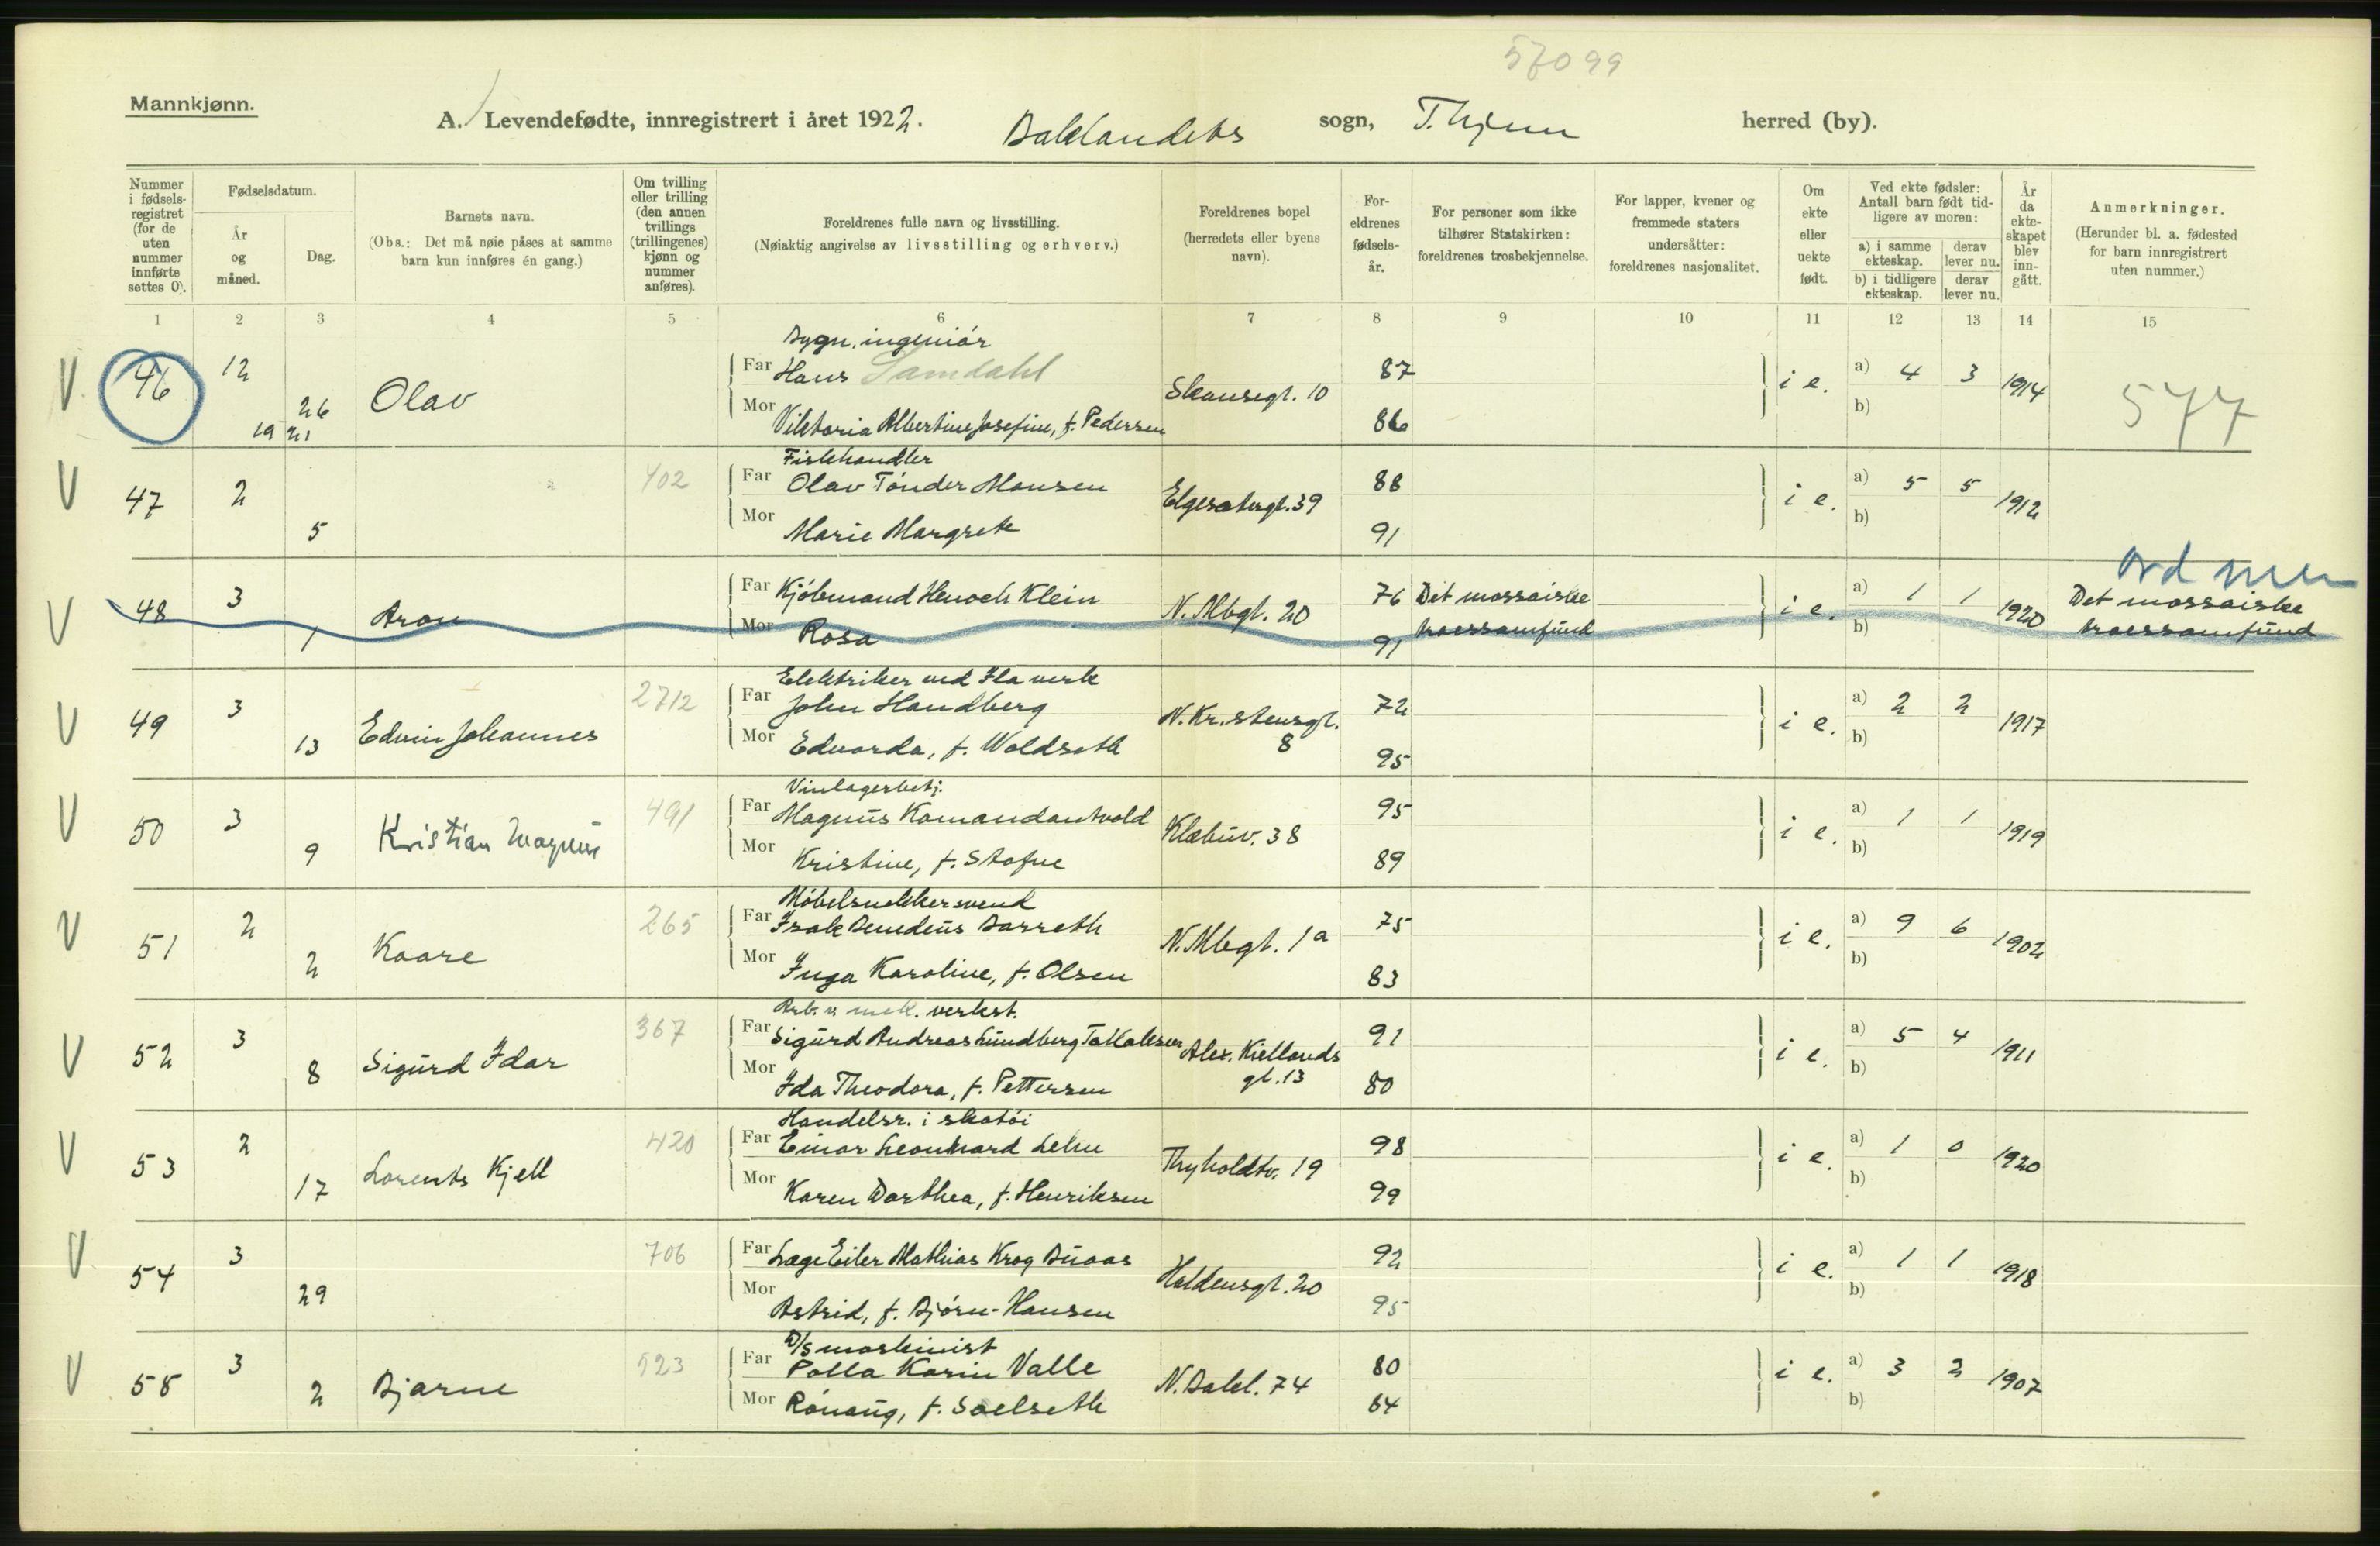 57099
Mannkjønn.
A. Levendefødte, innregistrert i året 1922. Baklandets sogn, T.hjem herred (by).
Nummer i fødselsregistret (for de uten nummer innførte settes 0).
Fødselsdatum.
År og måned.
Dag.
Barnets navn.
(Obs.: Det må nøie påses at samme barn kun innføres én gang.)
Om tvilling eller trilling (den annen tvillings (trillingenes) kjønn og nummer anføres).
Foreldrenes fulle navn og livsstilling.
(Nøiaktig angivelse av livsstilling og erhverv.)
Foreldrenes bopel (herredets eller byens navn).
Foreldrenes fødselsår.
For personer som ikke tilhører Statskirken: foreldrenes trosbekjennelse.
For lapper, kvener og fremmede staters undersåtter: foreldrenes nasjonalitet.
Om ekte eller uekte født.
Ved ekte fødsler: Antall barn født tidligere av moren:
a) i samme ekteskap. derav lever nu.
b) i tidligere ekteskap. derav lever nu.
År da ekteskapet blev inngått.
Anmerkninger.
(Herunder bl. a. fødested for barn innregistrert uten nummer.)
1 2 3 4 5 6 7 8 9 10 11 12 13 14 15
Bygn. ingeniör
V 46 12 26 Olav Far Hans Samdahl Skansegt. 10 87 i e. a) 4 3 1914 577
1921 Mor Viktoria Albertine Josefine, f. Pedersen 86 b)
Fiskehandler
V 47 2 5 402 Far Olav Tönder Hansen Elgesetergt. 39 88 i e. a) 5 5 1912
Mor Marie Margrete 91 b)
V 48 3 1 Aron Far Kjöbmand Henoch Klein N. Mbgt. 20 76 Det mosaiske i e. a) 1 1 1920 Det mosaiske
Mor Rosa 91 troessamfund b) troessamfund
Elektriker ved Ila verk
V 49 3 13 Edvin Johannes 2712 Far John Handberg N. Kr.stensgt. 8 72 i e. a) 2 2 1917
Mor Edvarda, f. Woldseth 95 b)
Vinlagerbetj.
V 50 3 9 Kristian Magnus 491 Far Magnus Komandantvold Klæbuv. 38 95 i e. a) 1 1 1919
Mor Kristine, f. Stafne 89 b)
Möbelsnekkersvend
V 51 2 2 Kaare 265 Far Isak Benedeus Barreth N. Mbgt. 1a 75 i e. a) 9 6 1902
Mor Inga Karoline, f. Olsen 83 b)
Arb. v. mek. verkst.
V 52 3 8 Sigurd Idar 367 Far Sigurd Andreas Lundberg Alex. Kiellands gt. 13 91 i e. a) 5 4 1911
Mor Ida Theodora, f. Pettersen 80 b)
Handelsr. i skotöi
V 53 2 17 Lorents Kjell 420 Far Einar Leonhard Lehn Thyholdtv. 19 98 i e. a) 1 0 1920
Mor Karen Dorthea, f. Henriksen 99 b)
V 54 3 29 706 Far Læge Eiler Mathias Krog Buaas Haldensgt. 20 92 i e. a) 1 1 1918
Mor Astrid, f. Björn-Hansen 95 b)
D/S maskinist
V 55 3 2 Bjarne 523 Far Palla Karin Valle N. Bakl. 74 80 i e. a) 3 2 1907
Mor Rönaug, f. Saelseth 84 b)